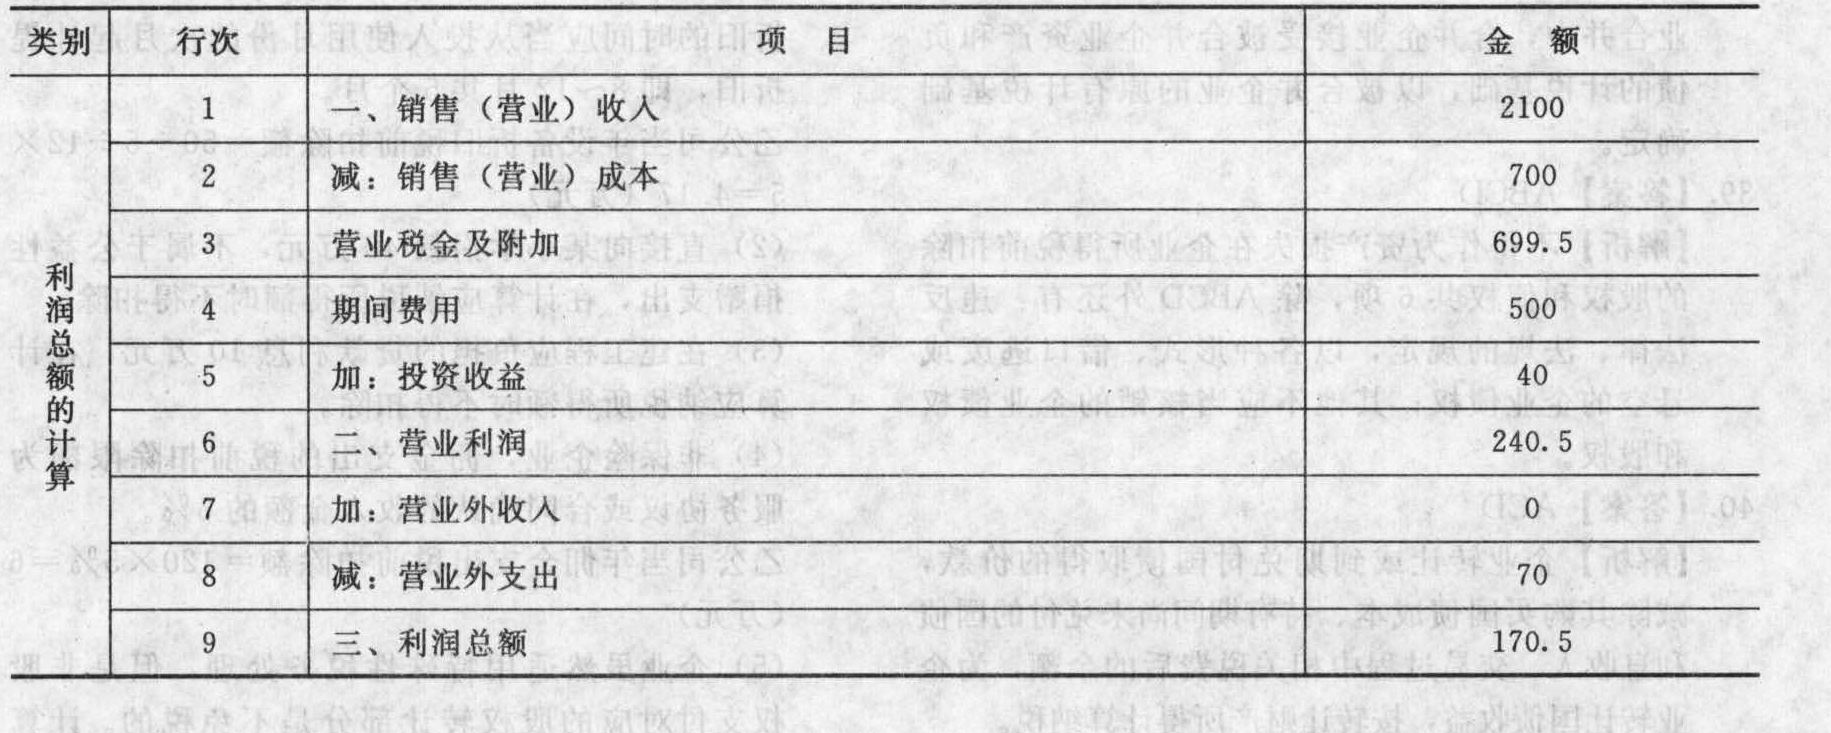 类别 行次 项 目 金 额
利润总额的计算
1 一、销售（营业）收入 2100
2 减：销售（营业）成本 700
3 营业税金及附加 699.5
4 期间费用 500
5 加：投资收益 40
6 二、营业利润 240.5
7 加：营业外收入 0
8 减：营业外支出 70
9 三、利润总额 170.5